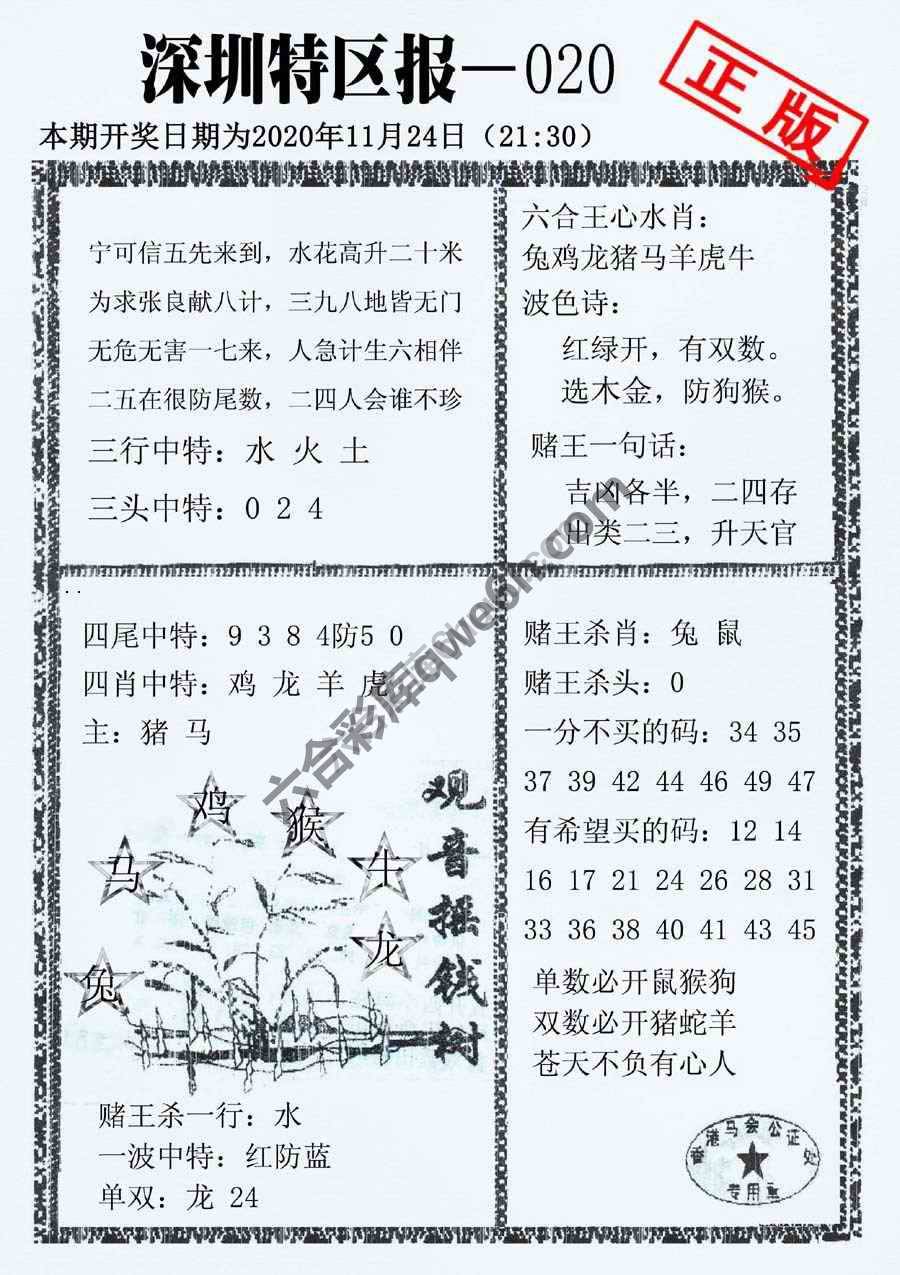 深圳特区报—020
正版
本期开奖日期为2020年11月24日（21:30）
宁可信五先来到，水花高升二十米
为求张良献八计，三九八地皆无门
无危无害一七来，人急计生六相伴
二五在很防尾数，二四人会谁不珍
三行中特：水 火 土
三头中特：0 2 4
六合王心水肖：
兔鸡龙猪马羊虎牛
波色诗：
红绿开，有双数。
选木金，防狗猴。
赌王一句话：
吉凶各半，二四存
出类二三，升天官
四尾中特：9 3 8 4防5 0
四肖中特：鸡 龙 羊 虎
主：猪 马
鸡
猴
马
牛
龙
兔
观音摇钱树
赌王杀一行：水
一波中特：红防蓝
单双：龙 24
赌王杀肖：兔 鼠
赌王杀头：0
一分不买的码：34 35
37 39 42 44 46 49 47
有希望买的码：12 14
16 17 21 24 26 28 31
33 36 38 40 41 43 45
单数必开鼠猴狗
双数必开猪蛇羊
苍天不负有心人
香港马会公证处
专用章
六合彩库qwe6h.com